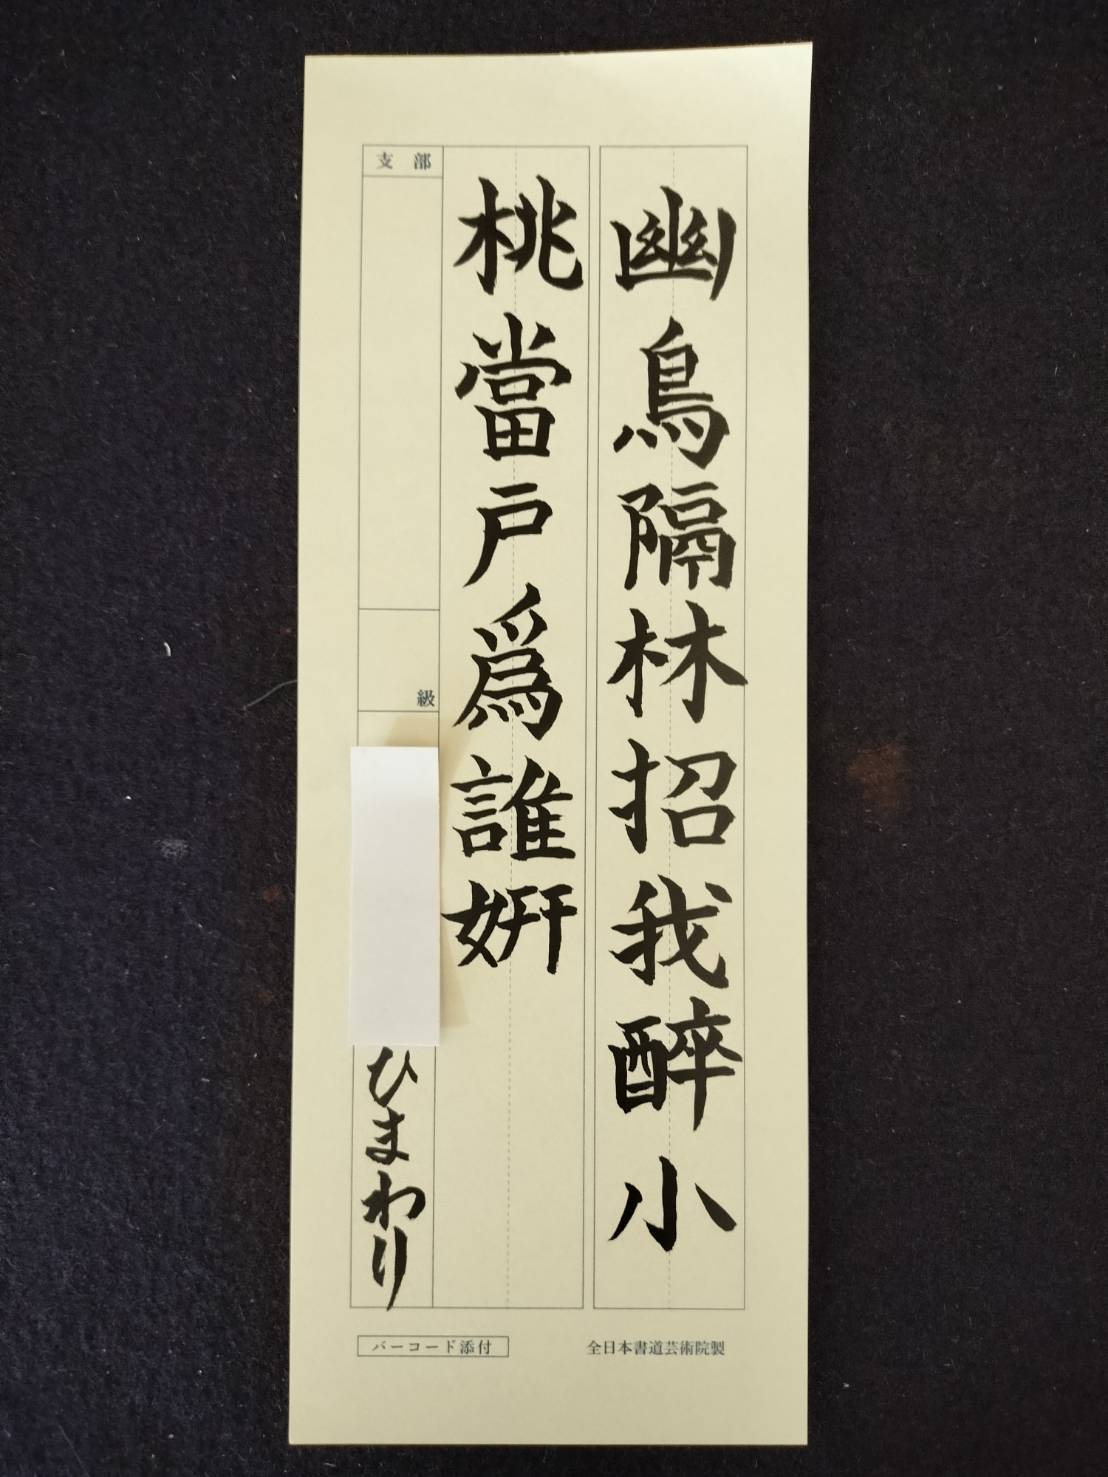 幽鳥隔林招我醉小
桃當戸爲誰姸
支部
級
ひまわり
バーコード添付
全日本書道芸術院製